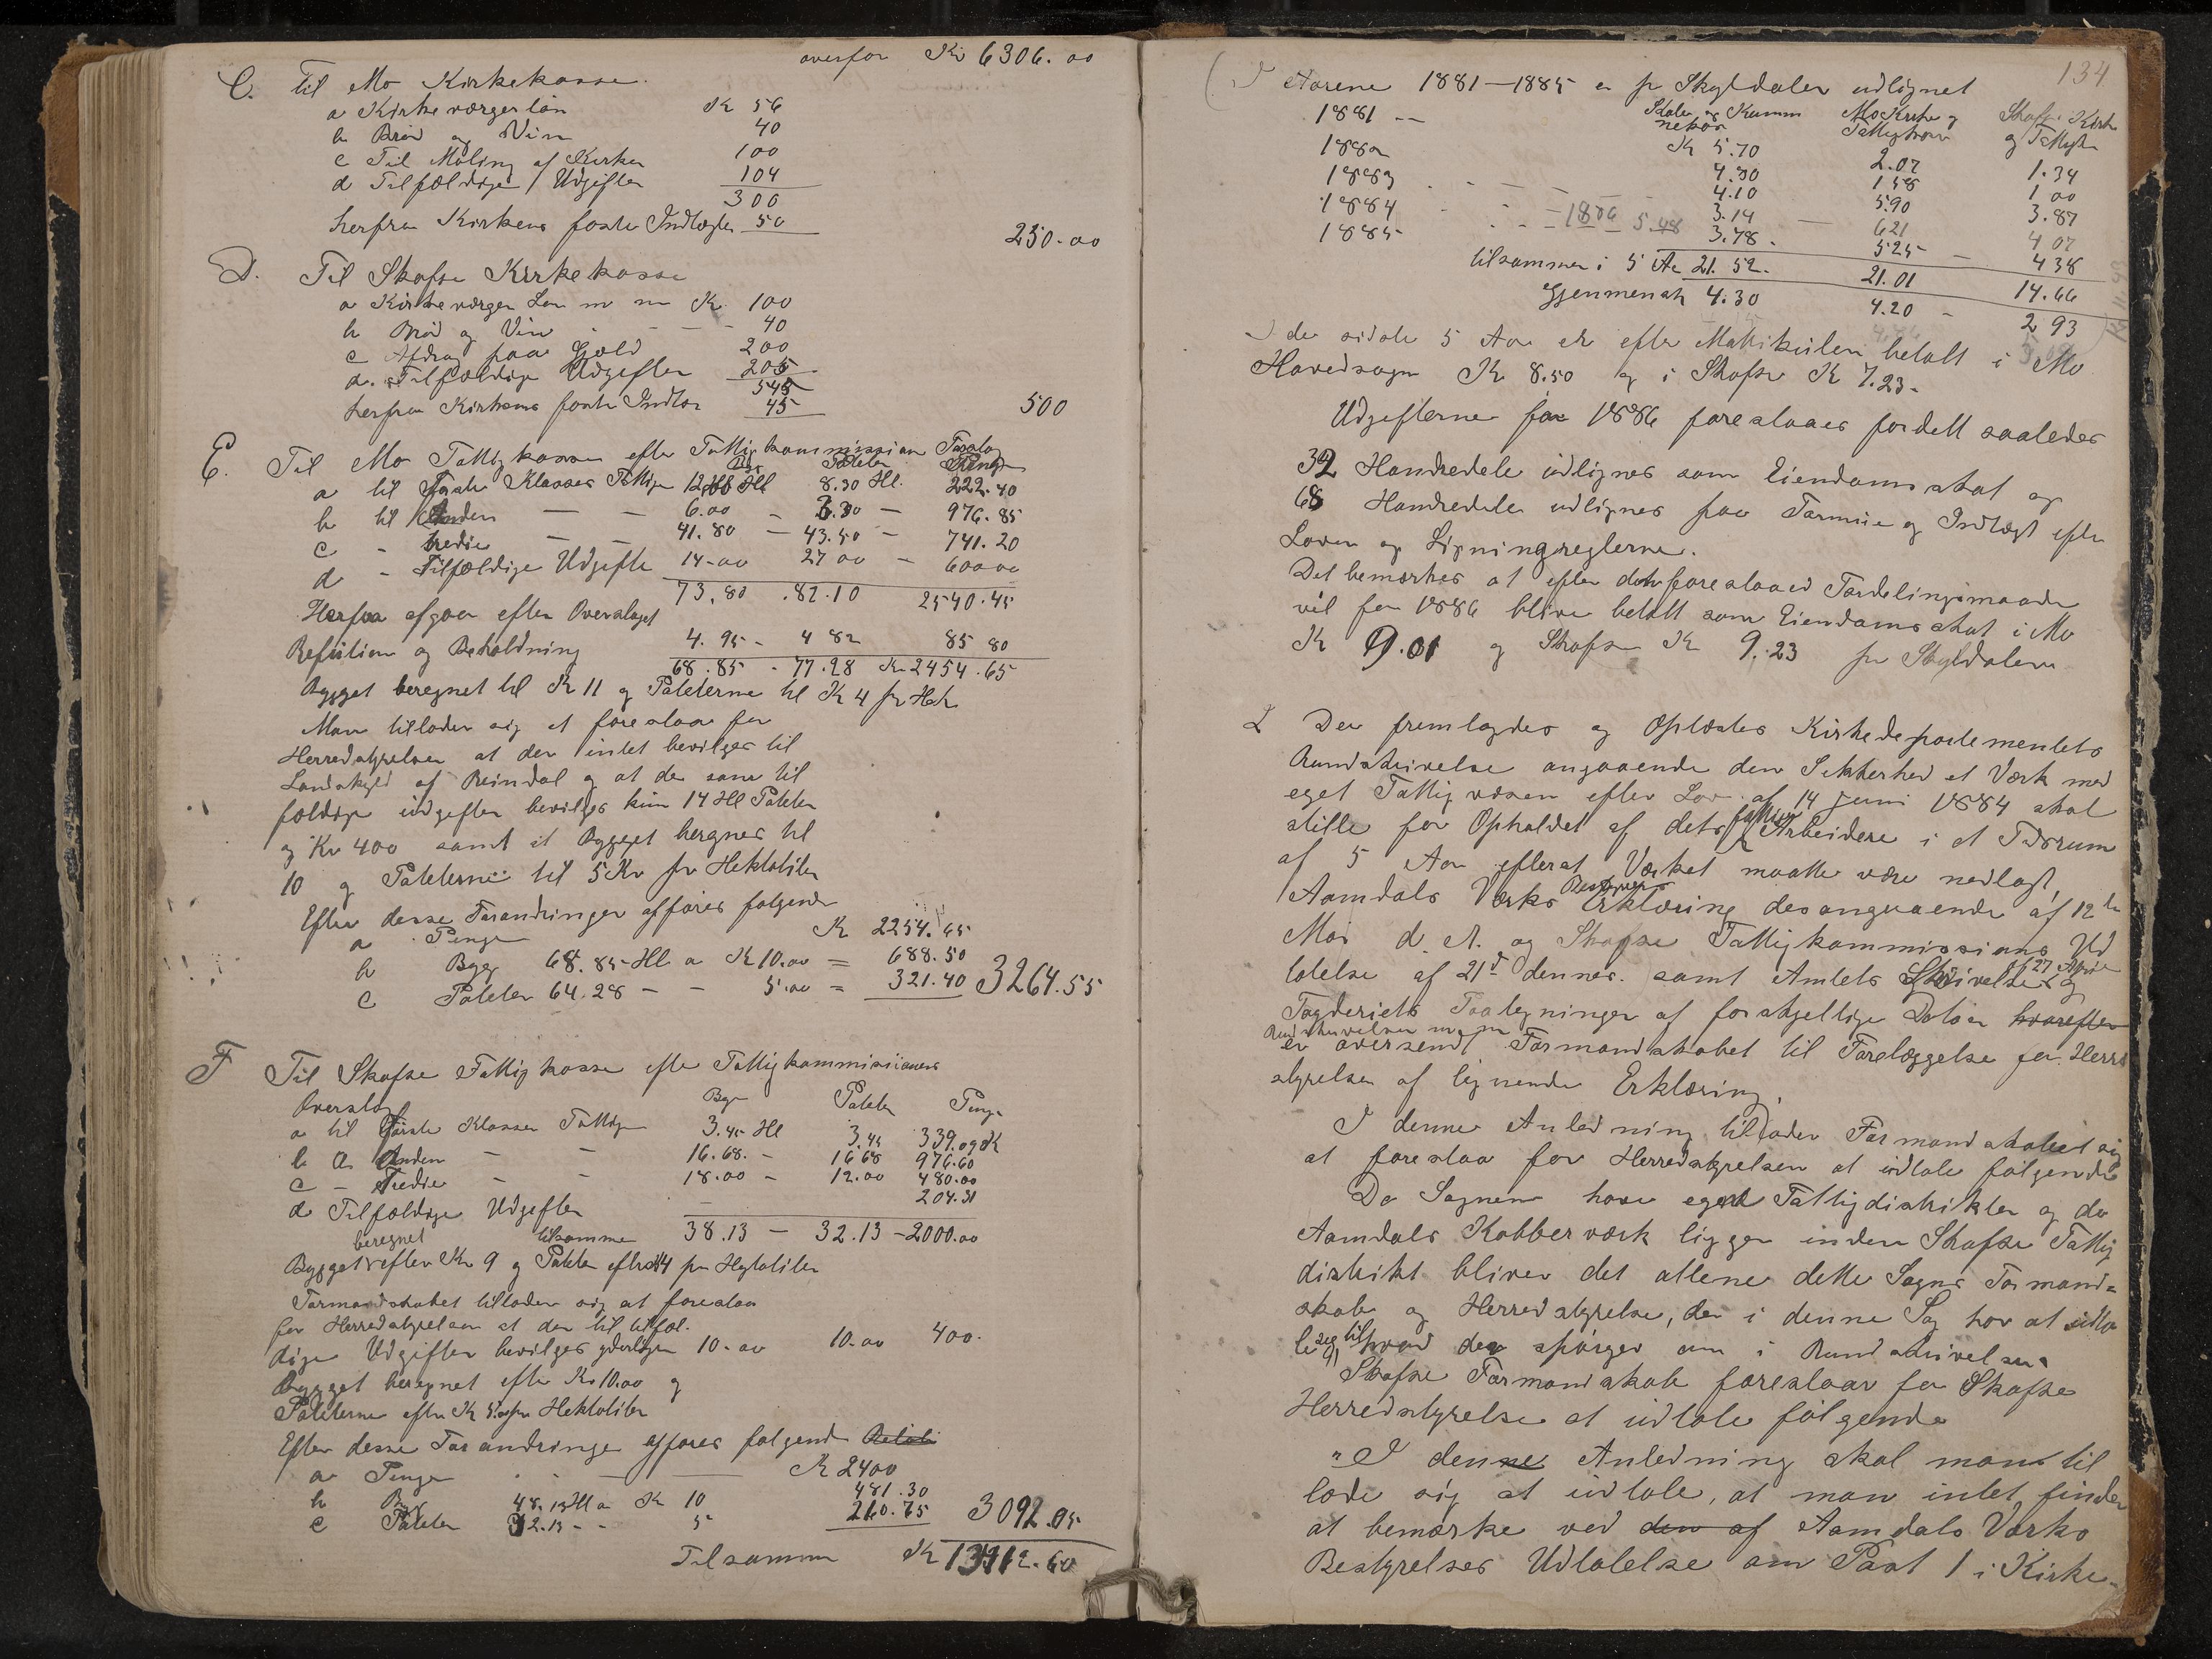 overfør Kr 6306.00
C. Til Mo Kirkekasse.
a Kirkeværgerløn Kr 56
b Brød og Vin 40
c Til Maling af Kirken 100
d Tilfældige Udgifter 104
300
herfra Kirkens faste Indtægter 50 250.00
D. Til Skafse Kirkekasse
a Kirkeværgen Løn m m Kr. 100
b Brød og Vin - - - - 40
c Afdrag paa Gjæld 200
d. Tilfældige Udgifter 205
545
herfra Kirkens faste Indtæ 45 500
E. Til Mo Fattigkasse efter Fattigkommissionen Forslag
Byg Poteter Penge
a til Første Klasses Fattige 12.00 Hl 8.30 Hl. 222.40
b til Anden — — 6.00 - 3.30 — 976.85
c - tredie — — 41.80 — 43.50 - 741.20
d - Tilfældige Udgifte 14-00 27 00 — 600 00
73.80 .82.10 2540.45
Herfra afgaar efter Overslaget
Refusion og Beholdning 4.95 - 4 82 85 80
68.85 - 77.28 Kr 2454.65
Bygget beregnet til Kr 11 og Poteterne til Kr 4 pr Hek
Man tillader sig at foreslaa for
Herredstyrelsen at der intet bevilges til
Landskyld af Reindal og at der som til
fældige udgifter bevilges kun 14 Hl Poteter
og Kr 400 samt at Bygget beregnes til
10 og Poteterne til 5 Kr pr Hektoliter
Efter disse Forandringer opføres følgende
a Penge Kr 2254.65
b Byg 68.85 Hl a Kr 10.00 = 688.50
c Poteter 64.28 - - 5.00 = 321.40 3264.55
F Til Skafse Fattigkasse efter Fattigkommissionens
Overslag Byg Poteter Penge
a til Første Klasses Fattige 3.45 Hl 3.45 339.09 Kr
b Anden - - 16.68. - 16 68 976.60
c - Tredie - - 18.00 - 12.00 480.00
d Tilfældige Udgifter - 204.31
tilsamme 38.13 — 32.13 - 2000.00
Bygget beregnet efter Kr 9 og Poteter efter 4 pr Hektoliter
Formandskabet tillader sig at foreslaa
for Herredstyrelsen at der til tilfæl-
dige Udgifter bevilges yderligere 10-00 10.00 400.
Bygget beregnet efter Kr. 10.00 og
Poteterne efter Kr 5.00 pr Hektoliter
Efter disse Forandringer opføres følgende Beløb
a Penge - - - Kr 2400
b Byg 48.13 Hl a Kr 10 481.30
c Poteter 42.15 - - 5 210.75 3092.05
Tilsammen Kr 13412.60
134
I Aarene 1881—1885 er pr Skylddaler udlignet
Skole og Kommunekas Mo Kirke og Fattigkasse Skafse Kirke og Fattigk
1881 -- Kr 5.70 2.07 1.34
1882 4.80 158 1 00
1883 . - - - - - 4.10 5.90 3.87
1884 . - - 1886 5.48 3.14 — 621 4 07
1885 - - - 3.78. 525 — 438
tilsammen i 5 Aar 21.52. 21.01 14.66
Gjennemsnit 4.30 4.20 - 2 93
I de sidste 5 Aar er efter Matrikulen betalt i Mo
Hovedsogn Kr 8.50 og i Skafse Kr 7.23-
Udgifterne for 1886 foreslaaes fordelt saaledes
32 Hundredele udlignes som Eiendomsskat og
68 Hundredele udlignes paa Formue og Indtægt efter
Loven og Ligningsreglerne.
Det bemærkes at efter den foreslaaed Fordelingsmaade
vil for 1886 blive betalt som Eiendomsskat i Mo
Kr 9.01 og Skafse Kr 9.23 pr Skylddaler
2 Der fremlagdes og Oplæstes Kirkedepartementets
Rundskrivelse angaaende den Sikkerhed et Værk med
eget Fattigvæsen efter Lov af 14 Juni 1884 skal
stille for Opholdet af dets fattige Arbeidere i et Tidsrum
af 5 Aar efterat Værket maatte være nedlagt,
Aamdals Værks Bestyrers Erklæring desangaaende af 12te
Mai d. A. og Skafse Fattigkommissions Ud
talelse af 21de dennes. samt Amtets Skrivelse af 27 April og
Fogderiets Paategninger af forskjellige Datoer hvorefter
Rundskrivelsen m m
er oversendt Formandskabet til Forelæggelse for Herred
styrelsen af lignende Erklæring.
I denne Anledning tillader Formandskabet sig
at foreslaa for Herredstyrelsen at udtale følgende
Da Sognene have eget Fattigdistrikter og da
Aamdals Kobberværk ligger inden Skafse Fattig
distrikt bliver det allene dette Sogns Formand-
skab og Herredstyrelse, der i denne Sag har at udta
le sig til hvad der spørges om i Rundskrivelsen.
Skafse Formandskab foreslaar for Skafse
Herredstyrelse at udtale følgende
"I denne Anledning skal man til
lade sig at udtale, at man intet finder
at bemærke ved den af Aamdals Værks
Bestyrelses Udtalelse om Post 1 i Kirke-